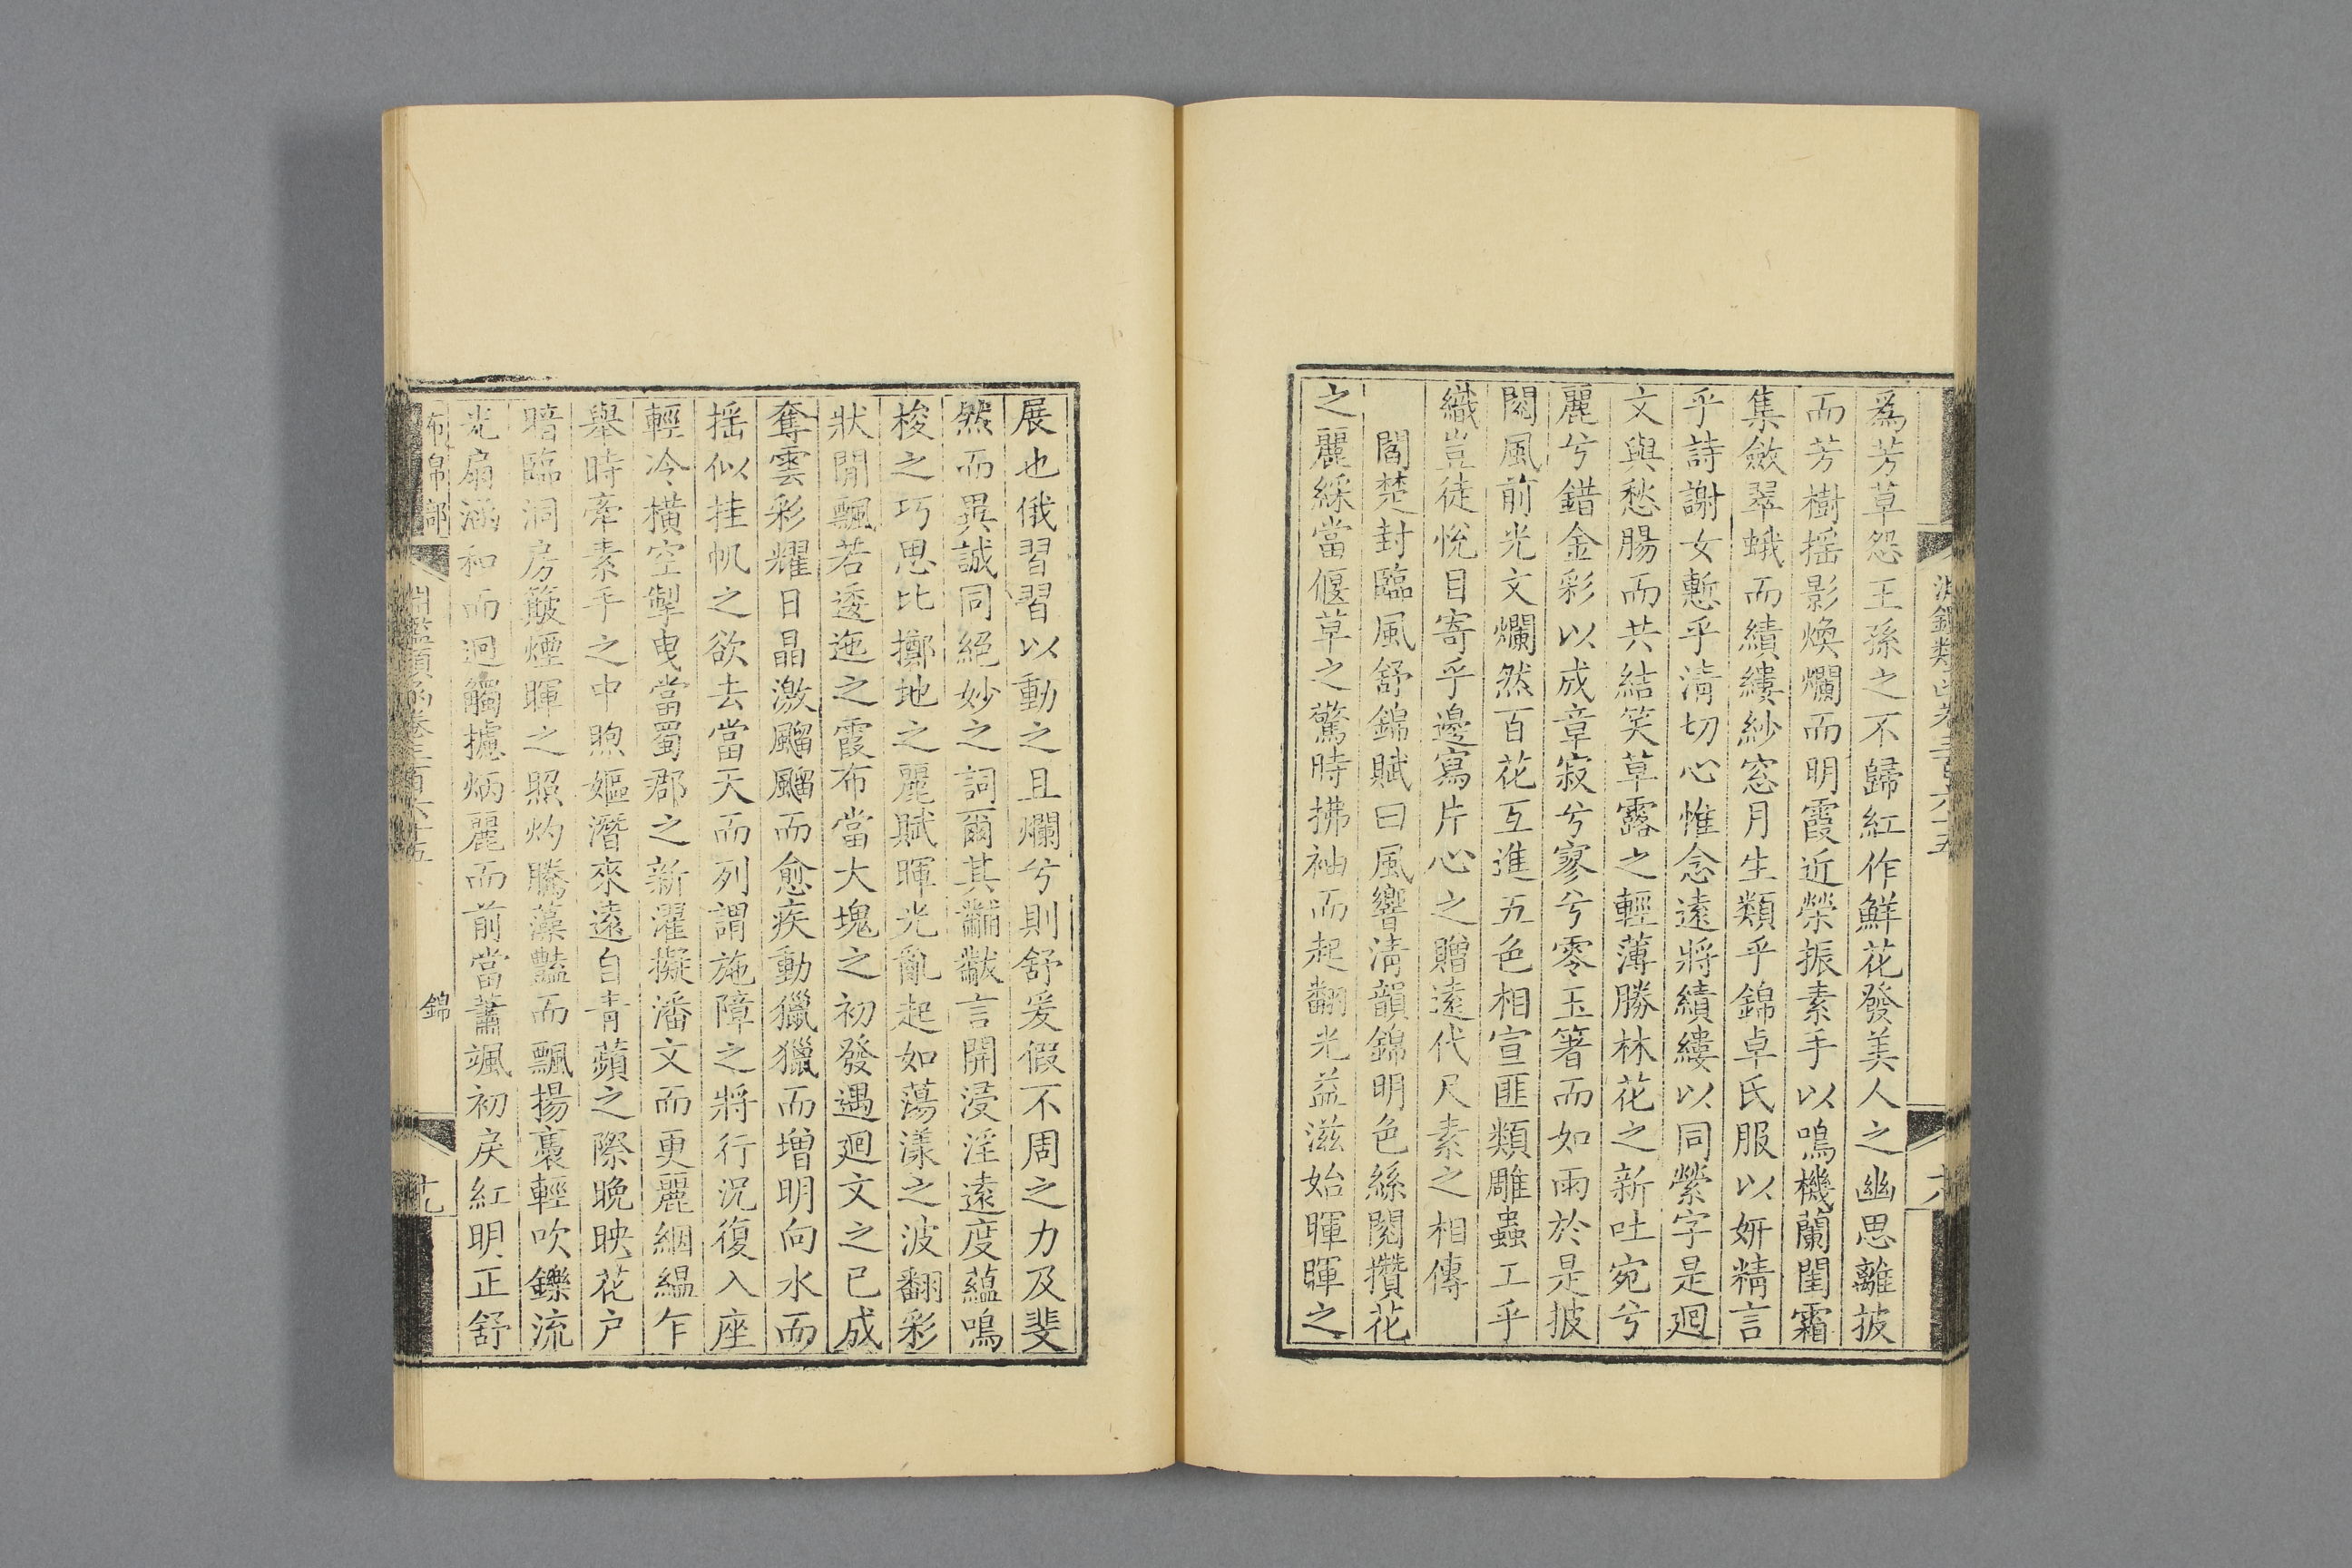 淵鑑類函卷三百六十五
為芳草怨王孫之不歸紅作鮮花發美人之幽思離披
而芳樹揺影煥爛而明霞近榮振素手以鳴機蘭閨霜
集斂翠蛾而績縷紗窓月生類乎錦卓氏服以妍精言
乎詩謝女慙乎淸切心惟念遠將績縷以同縈字是廻
文與愁腸而共結笑草露之輕薄勝林花之新吐宛兮
麗兮錯金彩以成章寂兮寥兮零玉箸而如雨於是披
閱風前光文爛然百花互進五色相宣匪類雕蟲工乎
織豈徒悅目寄乎邊寫片心之贈遠代尺素之相傳
閻楚封臨風舒錦賦曰風響淸韻錦明色絲閱攢花
之麗綵當偃草之驚時拂袖而起翻光益滋始暉暉之
展也俄習習以動之且爛兮則舒爰假不周之力及斐
然而異誠同絕妙之詞爾其黼黻言開浸淫遠度蘊鳴
梭之巧思比擲地之麗賦暉光亂起如蕩漾之波翻彩
狀閒飄若逶迤之霞布當大塊之初發遇廻文之已成
奪雲彩耀日晶激飀飀而愈疾動獵獵而增明向水而
揺似挂帆之欲去當天而列謂施障之將行況復入座
輕冷橫空掣曳當蜀郡之新濯擬潘文而更麗絪縕乍
舉時牽素手之中煦嫗潛來遠自青蘋之際晩映花户
暗臨洞房簸煙暉之照灼騰藻豔而飄揚裛輕吹鑠流
光扇涵和而迥觸攄炳麗而前當蕭颯初戾紅明正舒
布帛部
淵鑑類函卷三百六十五
錦
十九